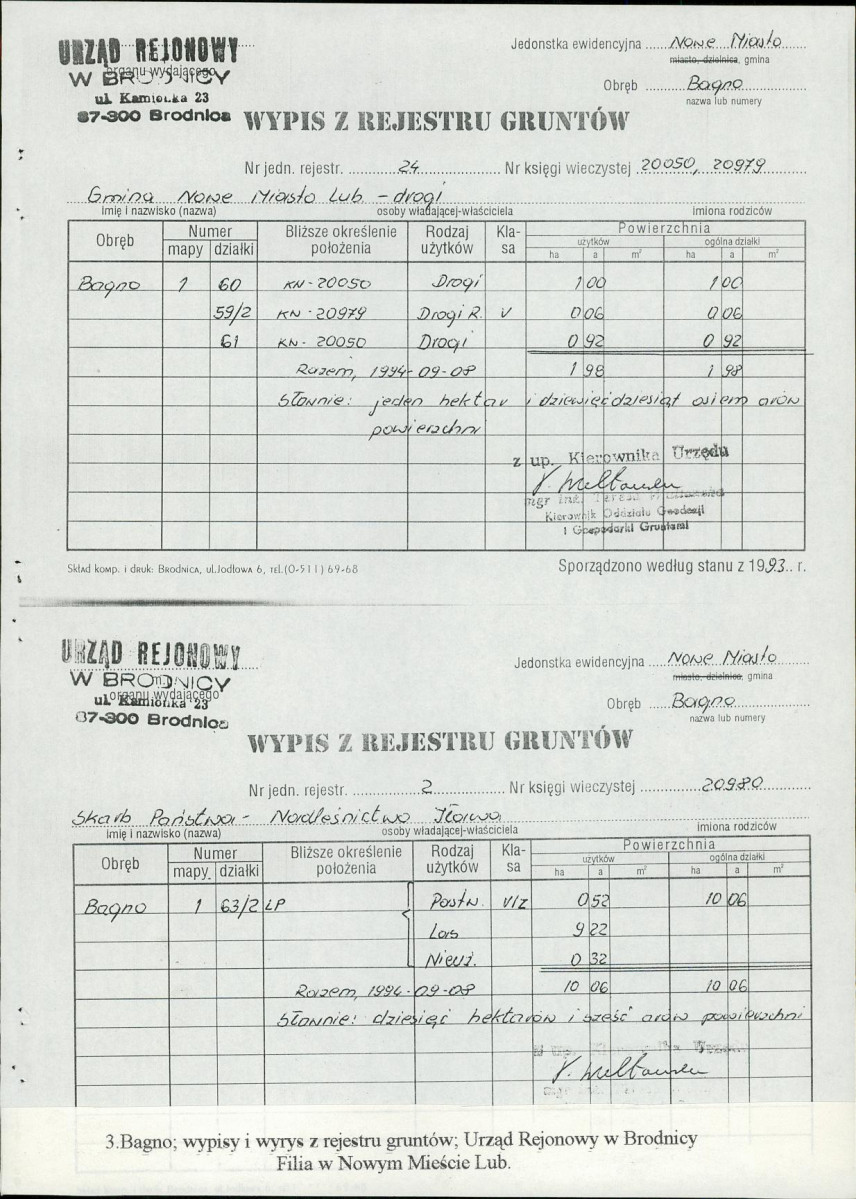 URZĄD REJONOWY
W BRODNICY
organu wydającego
ul. Kamionka 23
87-300 Brodnica
Jedonstka ewidencyjna ..... Nowe Miasto
miasto, dzielnica, gmina
Obręb ..... Bagno
nazwa lub numery
WYPIS Z REJESTRU GRUNTÓW
Nr jedn. rejestr. ..... 24 ..... Nr księgi wieczystej 20050, 20979
Gmina Nowe Miasto Lub. - drogi
imię i nazwisko (nazwa) osoby władającej-właściciela imiona rodziców
Obręb Numer Bliższe określenie położenia Rodzaj użytków Kla-sa Powierzchnia
mapy działki użytków ogólna działki
ha a m² ha a m²
Bagno 1 60 KN-20050 Drogi 1 00 1 00
59/2 KN-20979 Drogi R. V 0 06 0 06
61 KN-20050 Drogi 0 92 0 92
Razem, 1994-09-08 1 98 1 98
Słownie: jeden hektar i dziewięćdziesiąt osiem arów
powierzchni
z up. Kierownika Urzędu
mgr inż. Teresa
Kierownik Oddziału Geodezji
i Gospodarki Gruntami
Skład komp. i druk: Brodnica, ul. Jodłowa 6, tel. (0-511) 69-68
Sporządzono według stanu z 1993.. r.
URZĄD REJONOWY
W BRODNICY
organu wydającego
ul. Kamionka 23
87-300 Brodnica
Jedonstka ewidencyjna ..... Nowe Miasto
miasto, dzielnica, gmina
Obręb ..... Bagno
nazwa lub numery
WYPIS Z REJESTRU GRUNTÓW
Nr jedn. rejestr. ..... 2 ..... Nr księgi wieczystej ..... 20980
Skarb Państwa - Nadleśnictwo Iława
imię i nazwisko (nazwa) osoby władającej-właściciela imiona rodziców
Obręb Numer Bliższe określenie położenia Rodzaj użytków Kla-sa Powierzchnia
mapy działki użytków ogólna działki
ha a m² ha a m²
Bagno 1 63/2 LP Pastw. VIz 0 52 10 06
Las 9 22
Nieuż. 0 32
Razem, 1994-09-08 10 06 10 06
Słownie: dziesięć hektarów i sześć arów powierzchni
3.Bagno; wypisy i wyrys z rejestru gruntów; Urząd Rejonowy w Brodnicy
Filia w Nowym Mieście Lub.